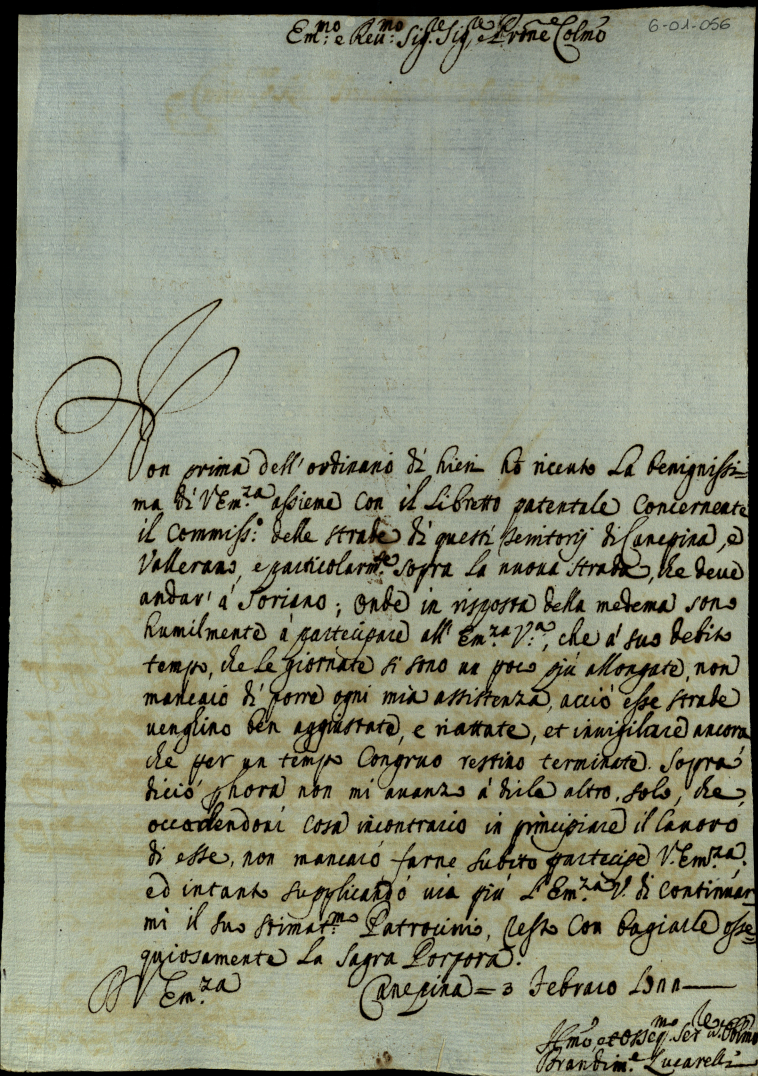 6-01-056
Em.mo e Rev.mo Sig.re Sig.re e Prōne Colmō
Non prima dell' ordinario di hieri hò riceuto La benignissi=
ma di V Em.za assieme con il Libretto patentale concernente
il Commiss.o delle strade di questi territorij di Canepina, e
Vallerano, e particolarm.te sopra la nuova strada, che deve
andar' á Soriano; Onde in risposta della medema sono
humilmente á partecipare all' Em.za V.a, che á suo debito
tempo, che le giornate si sono un poco più allongate, non
mancaró di porre ogni mia assistenza, acció esse strade
venghino ben aggiustate, e riattate, et invigilare ancora
che per un tempo Congruo restino terminate. Sopra
dició p hora non mi avanzo á dirle altro, solo, che,
occorrendoni cosa incontrario in principiare il lavoro
di esse, non mancaró farne subito partecipe V. Em.za.
ed intanto supplicando via più l' Em.za V. di continuar
mi il suo stimat.mo Patrocinio, resto con bagiarle osse=
quiosamente La Sagra Porpora.
V Em.za Canepina = 3 Febraro
Hmō, et osseq.mo Ser.re Obblmō
Brandim.e Lucarelli